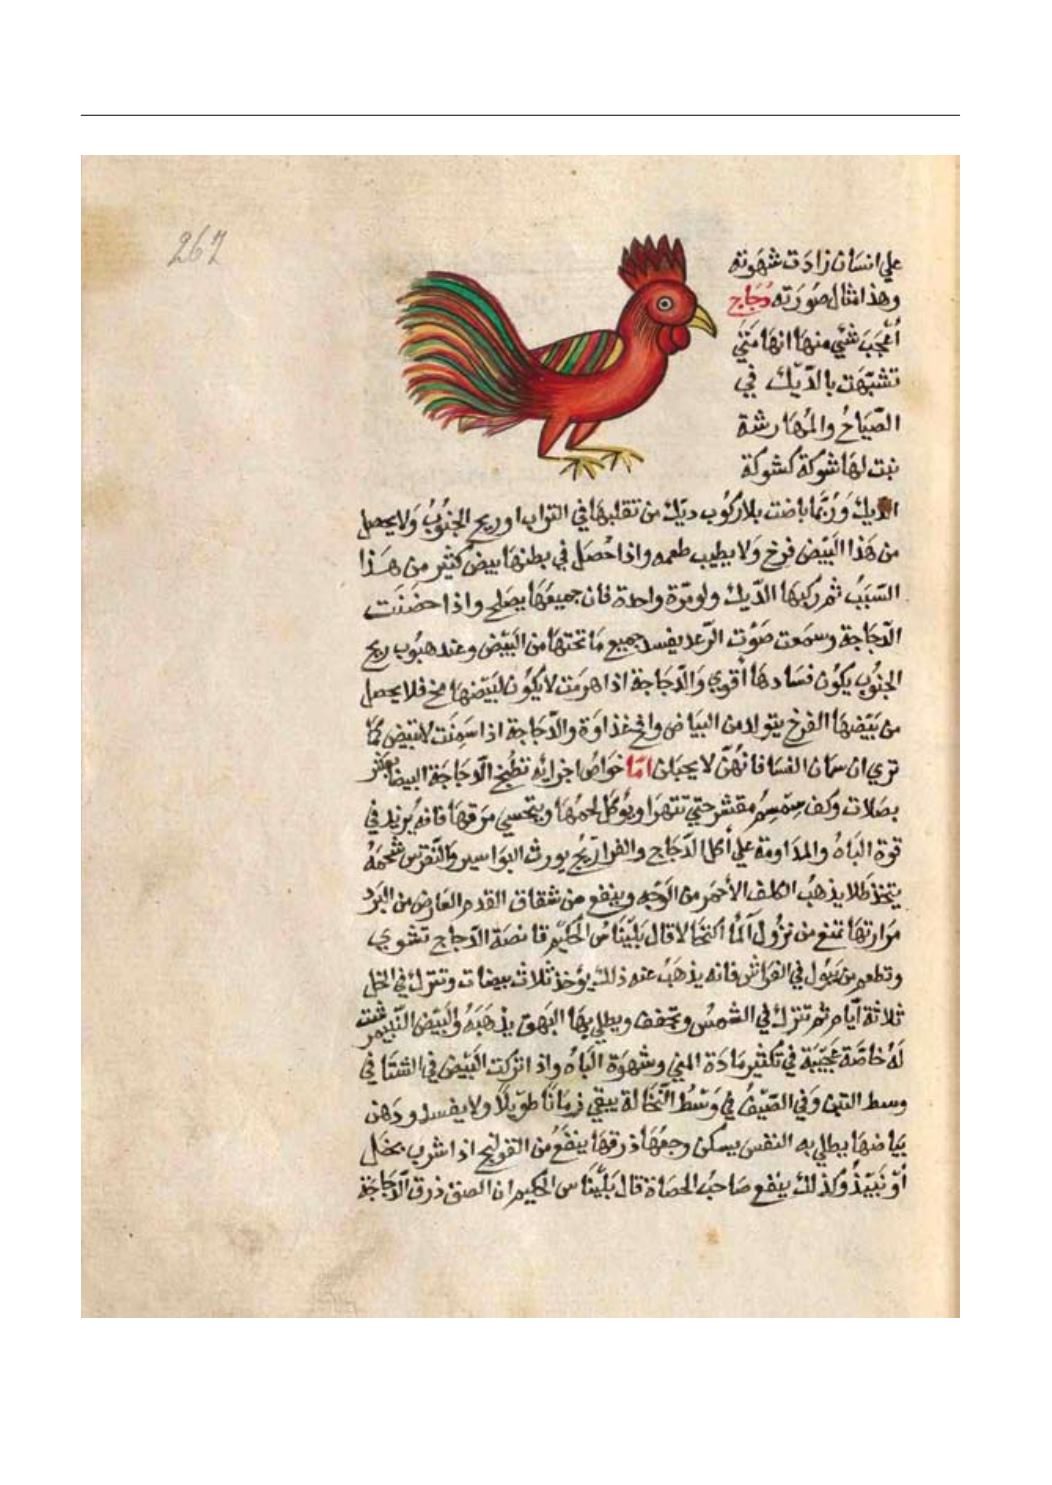 267
علي انسان زادت شهوته
وهذا مثال صورته دجاج
أعجب شئ منها انها متي
تشبهت بالديك في
الصياح والمهارشة
نبت لها شوكة كشوكة
الديك وربما باضت بلا ركوب ديك من تقلبها في التراب او ريح الجنوب ولا يحصل
من هذا البيض فرخ ولا يطيب طعمه واذا حصل في بطنها بيض كثير من هذا
السبب ثم ركبها الديك ولو مرة واحدة فان جميعها يصلح واذا حضنت
الدجاجة وسمعت صوت الرعد يفسد جميع ما تحتها من البيض وعند هبوب ريح
الجنوب يكون فسادها أقوي والدجاجة اذا هرمت لا يكون لبيضها مخ فلا يحصل
من بيضها الفرخ يتولد من البياض والمخ غذاوة والدجاجة اذا سمنت لا تبيض كما
تري ان سمان النسا فانهن لا يحبلن اما خواص اجزايه تطبخ الدجاجة البيضا بعشر
بصلات وكف سمسم مقشر حتي تتهرا ويوكل لحمها ويتحسي مرقها فانه يزيد في
قوة الباه والمداومة علي أكل الدجاج والفراريج يورث البواسير والنقرس شحمه
يتخذ طلا يذهب الكلف الأحمر من الوجه وينفع من شقاق القدم العارض من البرد
مرارتها تمنع من نزول الما اكتحالا قال بليناس الحكيم قانصة الدجاج تشوي
وتطعم من يبول في الفراش فانه يذهب عنه ذلك يؤخذ ثلاث بيضات وتترك في الخل
ثلاثة أيام ثم تترك في الشمس وتجفف ويطلي بها البهق يذهبه والبيض النيمرشت
له خاصة عجيبة في تكثير مادة المني وشهوة الباه واذا تركت البيض في الشتا في
وسط التبن وفي الصيف في وسط النخالة يبقي زمانا طويلا ولا يفسد ودهن
بياضها يطلي به النفس يسكن وجعها ذرقها ينفع من القولنج اذا شرب بخل
أو نبيذ وكذلك ينفع صاحب الحصاة قال بليناس الحكيم ان الصق ذرق الدجاجة